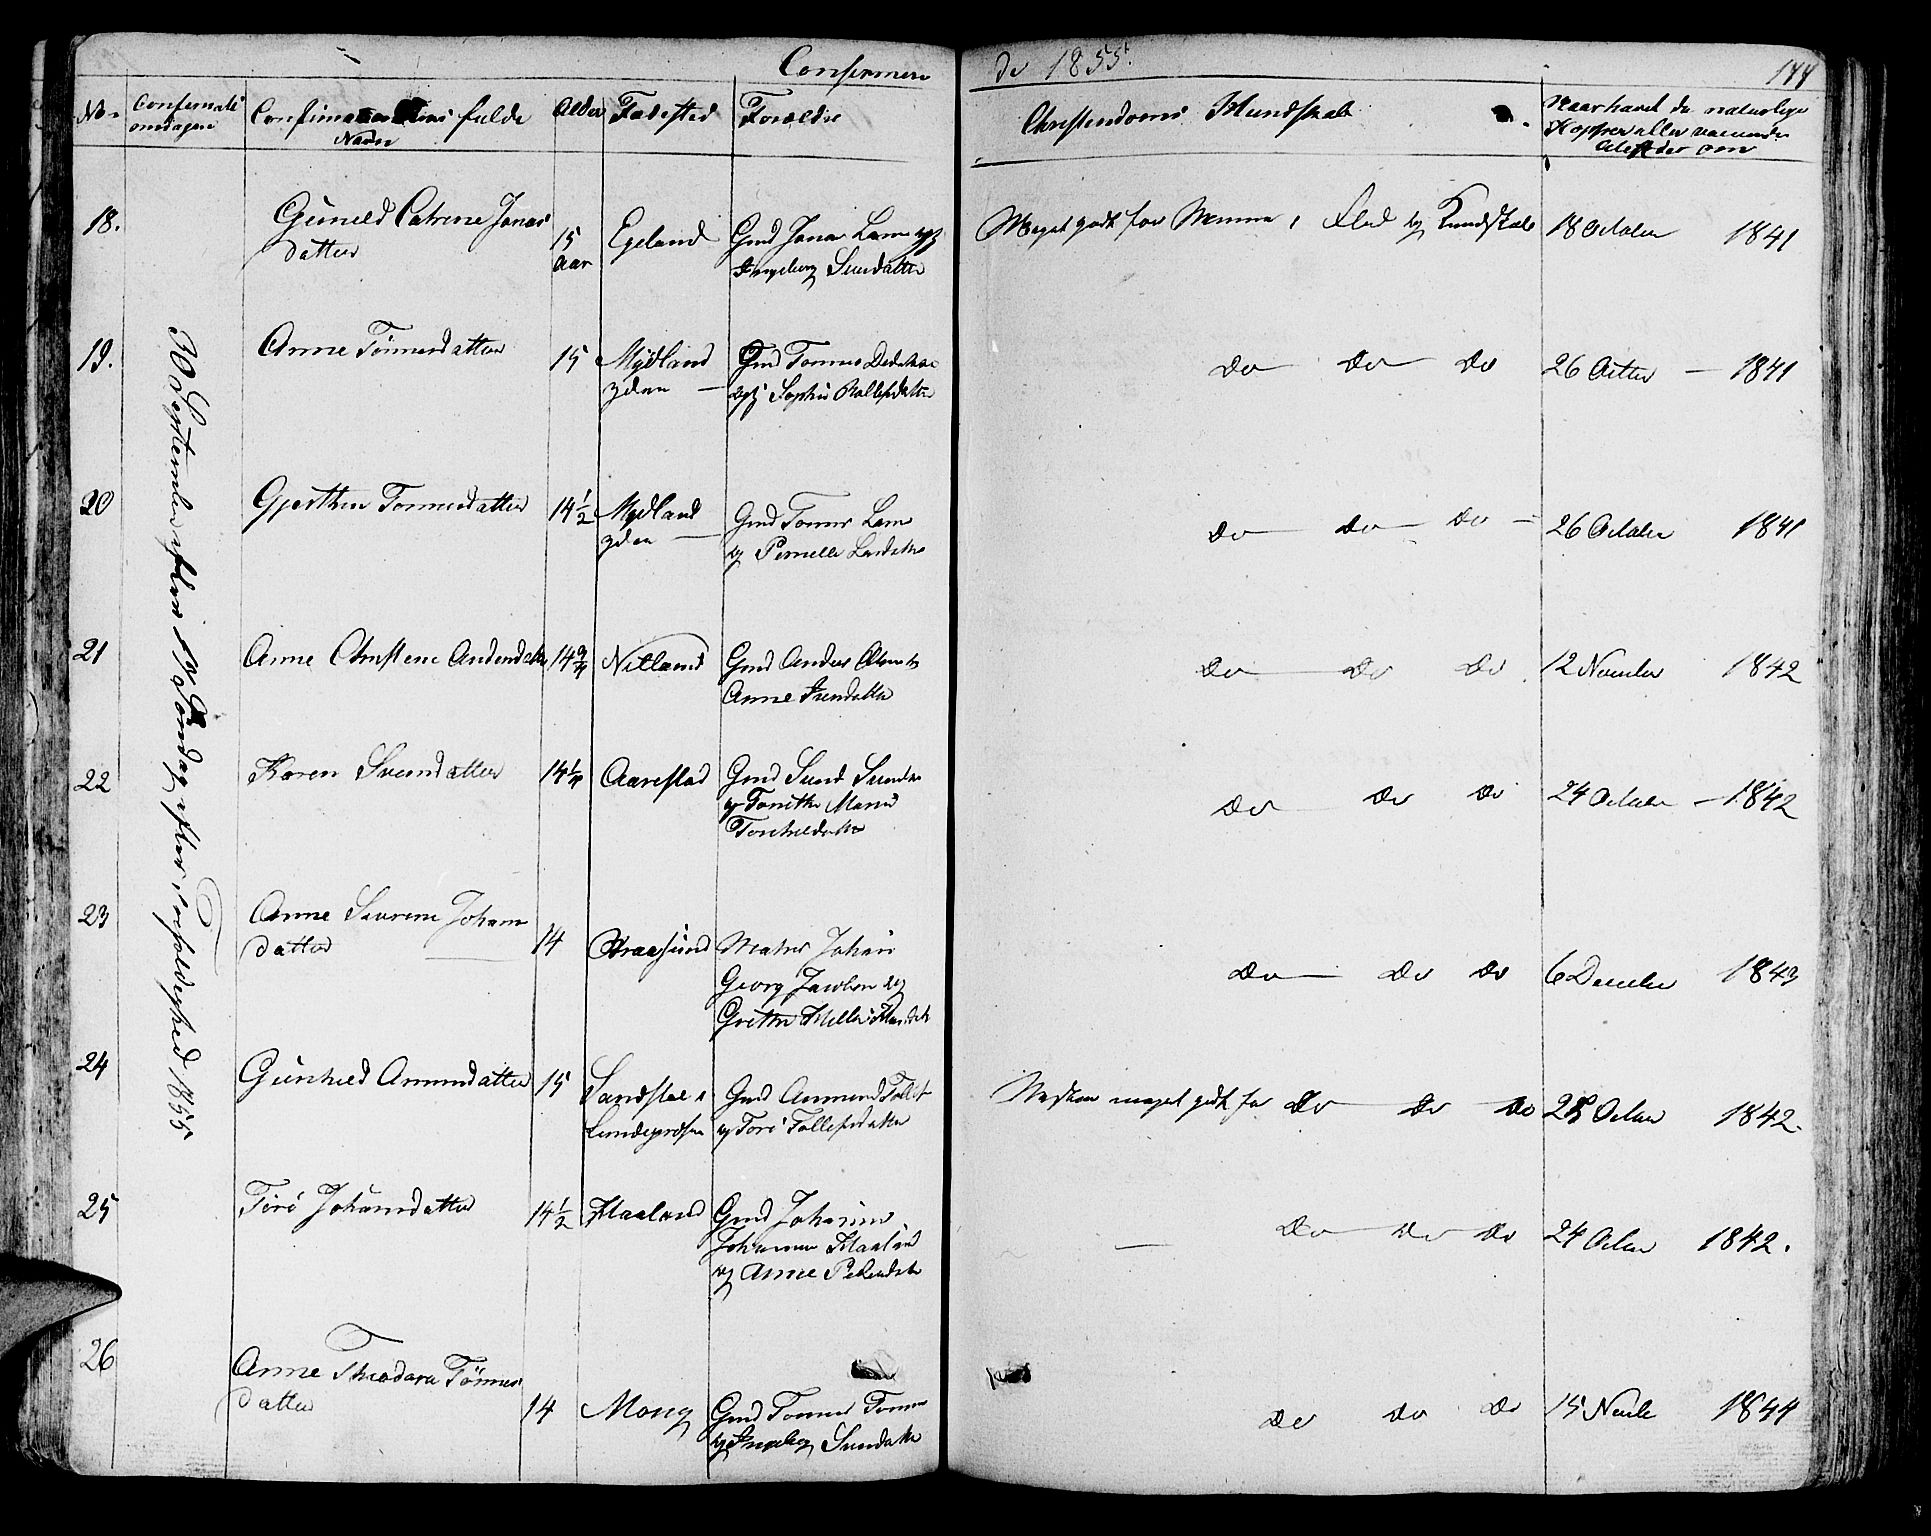 Confirmere
de 1855.
177
No.
Confirmati
onsdagen
Confirmandens fulde
Navn
Alder
Fødested
Forældre
Christendoms Kundskab
Naar havt de naturlige
Kopper eller vaccinede
Attester om
30 September eller 17de Søndag efter Trefoldighed 1855
18.
Guneld Catrine Jonas
datter
15
aar
Egeland
Gmd Jonas Larsen og
Ingeborg Svendsdatter
Meget godt for Nemme, Flid og Kundskab
18 October 1841
19.
Anne Tönnesdatter
15
Mydland
ydre
Gmd Tonnes
og Sophie Rollefsdatter
Do Do Do
26 Octbr 1841
20
Gjerthru Tonnesdatter
14 1/2
Mydland
ydre
Gmd Tonnes Larsen
og Pernelle Larsdatter
Do Do Do
26 October 1841
21
Anne Christene Andersdatter
14 3/4
Netland
Gmd Anders
Anne Svendsdatter
Do Do Do
12 November 1842
22
Karen Svendsdatter
14 1/4
Aarestad
Gmd Svend Svendsen
og Torethe Marie
Torkeldsdatter
Do Do Do
24 October 1842
23
Anne Severine Johans
datter
14
Straesund
Matros Johan
Georg Jacobsen og
Grethe Helle
Do Do Do
6 December 1843
24
Gunhild Amundsdatter
15
Sandstøl i
Lundeprestegj
Gmd Ammund Tollefs
og Tore Tollefsdatter
Næsten meget godt for Do Do Do
25 October 1842.
25
Tore Johansdatter
14 1/2
Haaland
Gmd Johannes
Johannesen Haaland
og Anne Pedersdatter
Do Do Do
24 October 1842.
26
Anne Theodora Tönnes
datter
14
Mong
Gmd Tonnes Tonnes
og Ingeborg Svendsdatter
Do Do Do
15 Novbr 1844